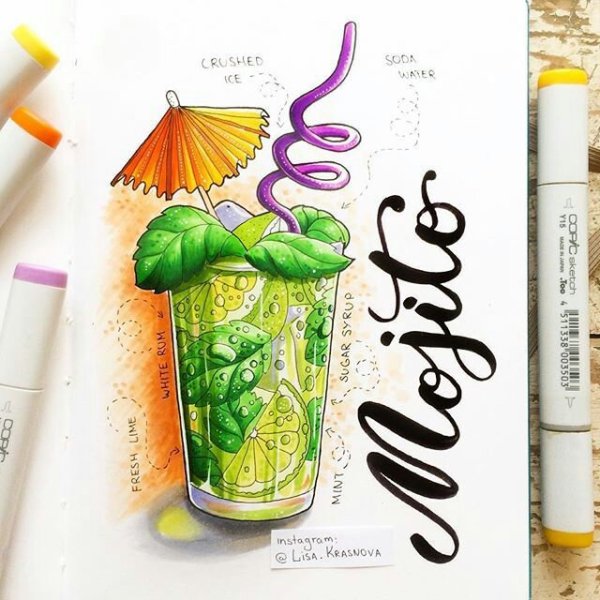 CRUSHED
ICE
SODA
WATER
WHITE RUM
SUGAR SYRUP
FRESH LIME
MINT
Mojito
instagram:
@ LISA.KRASNOVA
COPIC sketch
Y15
MADE IN JAPAN
.Too
4 511338 003503